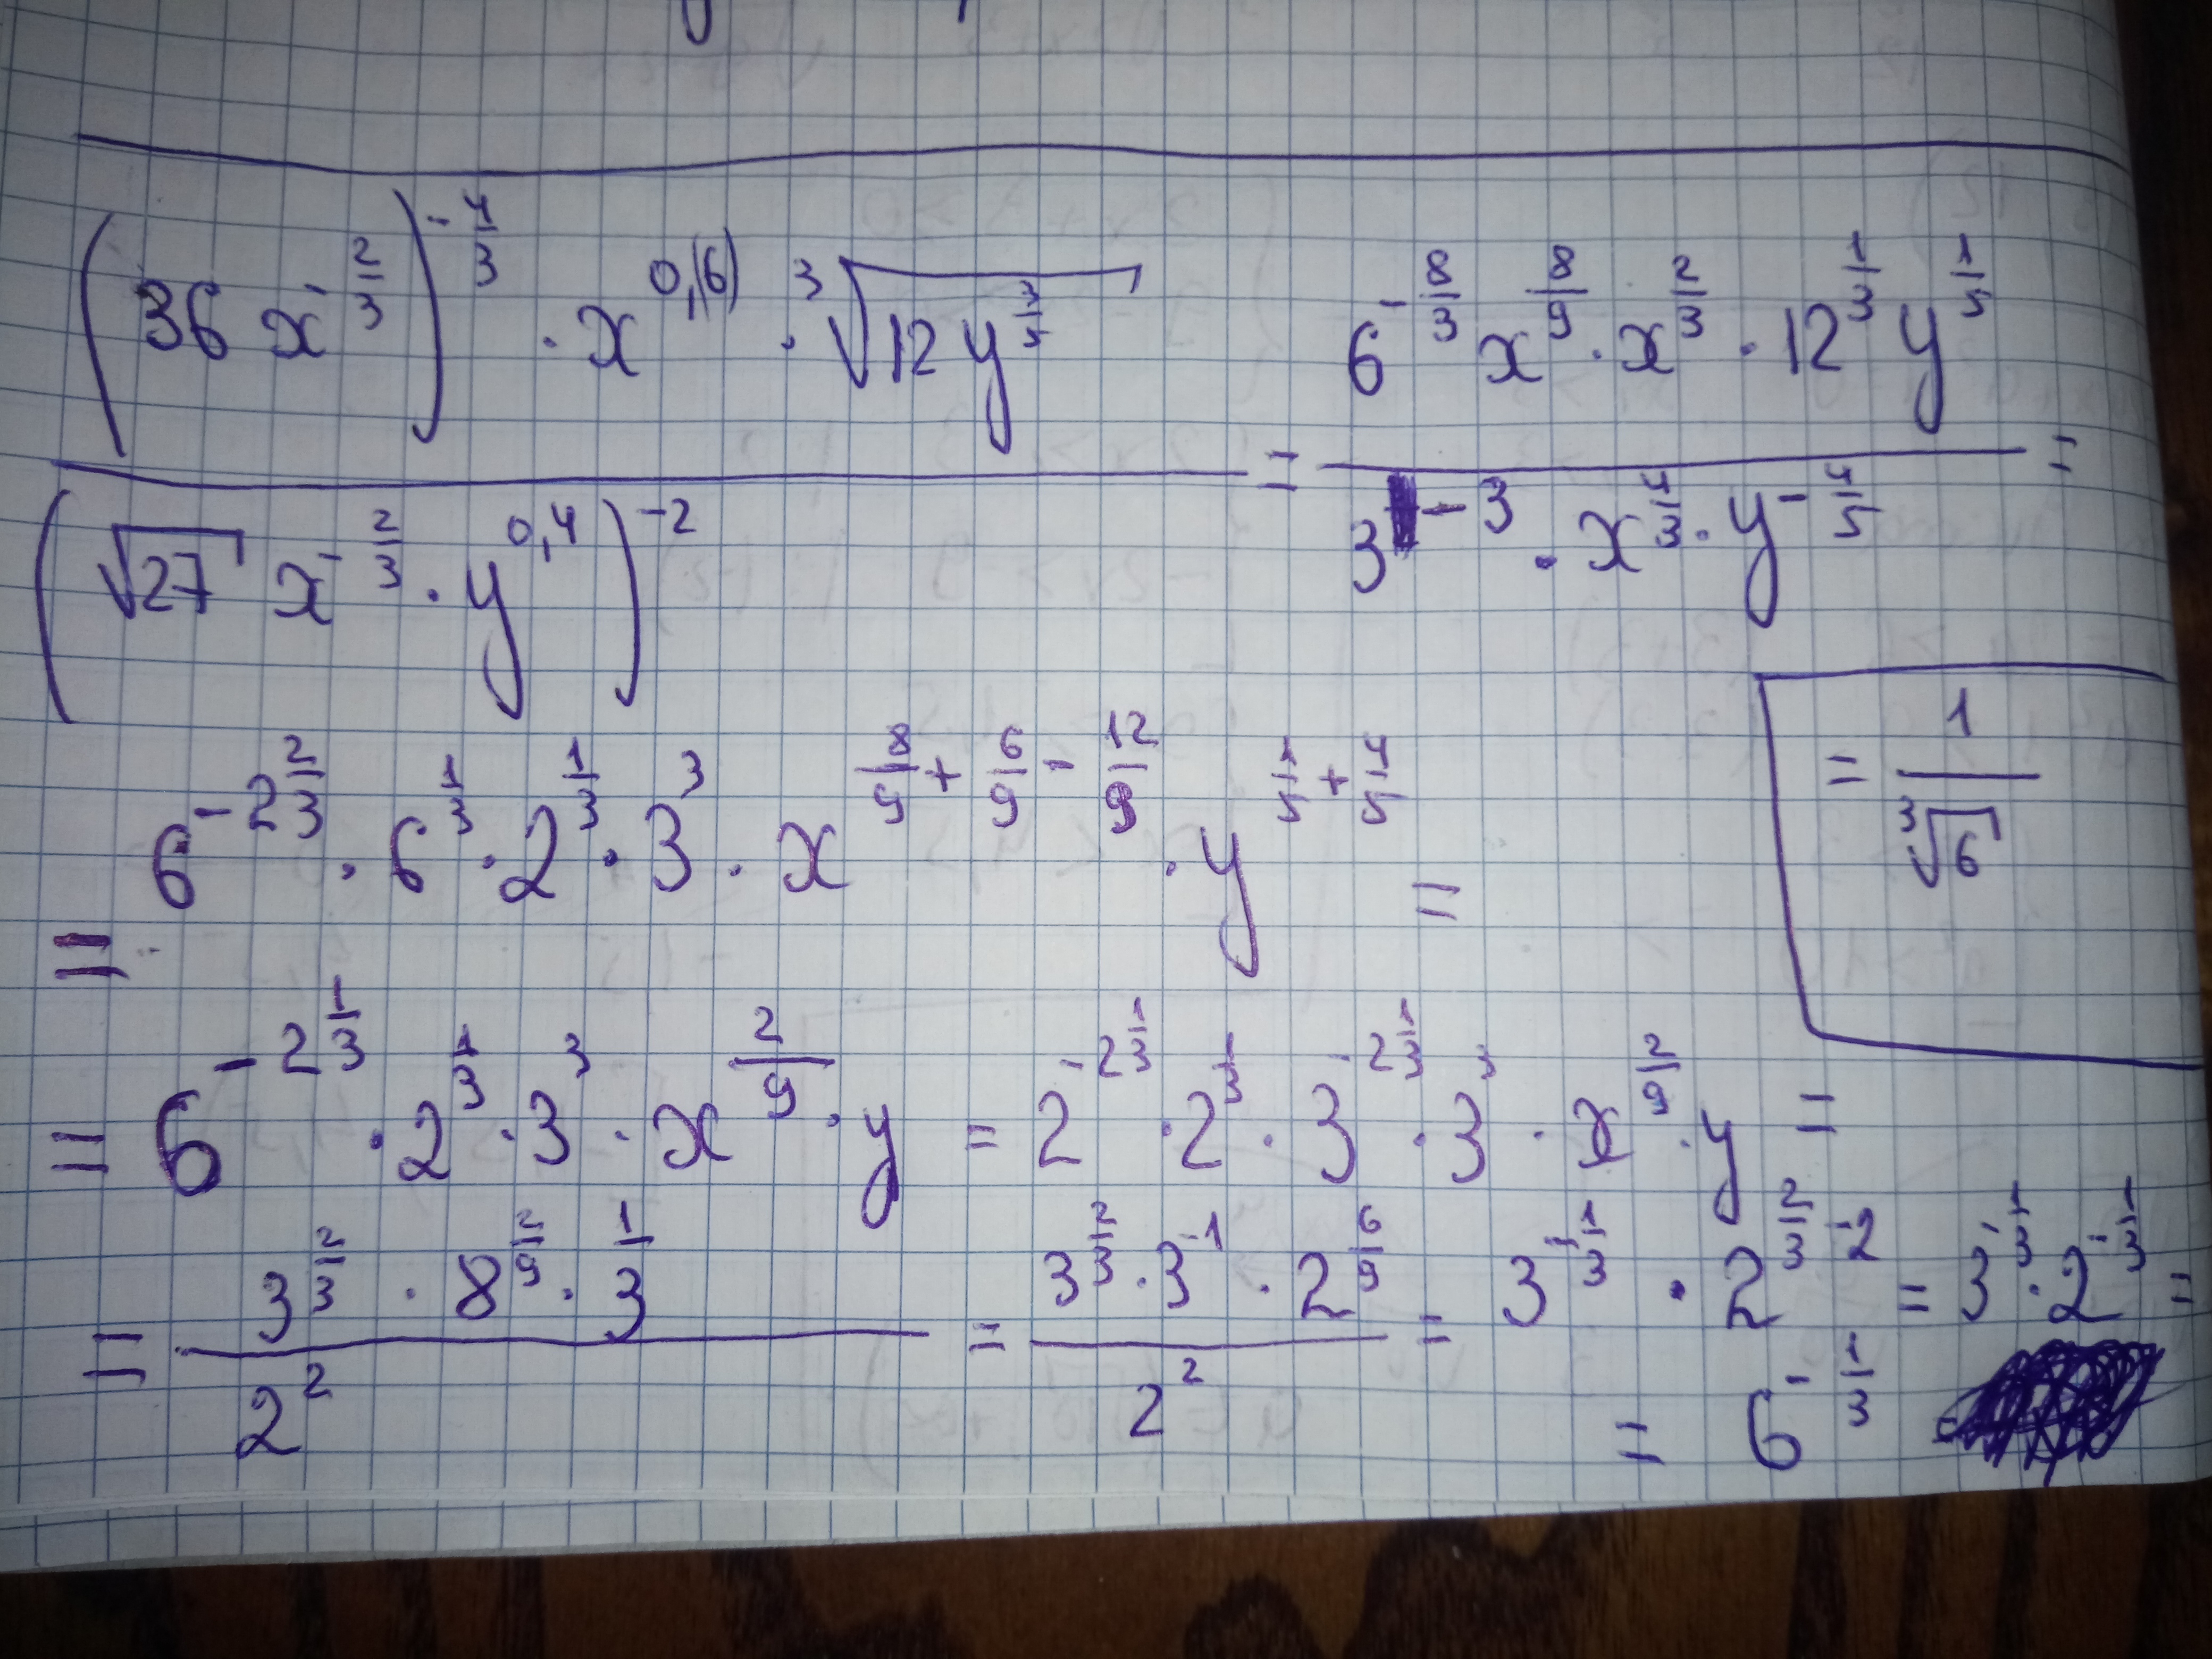 (36 x^{-\frac{2}{3}})^{-\frac{4}{3}} · x^{0,(6)} · \sqrt[3]{12 y^{\frac{3}{5}}} / (\sqrt{27} x^{-\frac{2}{3}} · y^{0,4})^{-2} = 6^{-\frac{8}{3}} x^{\frac{8}{9}} · x^{\frac{2}{3}} · 12^{\frac{1}{3}} y^{\frac{1}{5}} / 3^{-3} · x^{\frac{4}{3}} · y^{-\frac{4}{5}} =
= 6^{-2\frac{2}{3}} · 6^{\frac{1}{3}} · 2^{\frac{1}{3}} · 3^{3} · x^{\frac{8}{9} + \frac{6}{9} - \frac{12}{9}} · y^{\frac{1}{5} + \frac{4}{5}} =
= 6^{-2\frac{1}{3}} · 2^{\frac{1}{3}} · 3^{3} · x^{\frac{2}{9}} · y = 2^{-2\frac{1}{3}} · 2^{\frac{1}{3}} · 3^{-2\frac{1}{3}} · 3^{3} · x^{\frac{2}{9}} · y =
= 3^{\frac{2}{3}} · 8^{\frac{2}{9}} · \frac{1}{3} / 2^{2} = 3^{\frac{2}{3}} · 3^{-1} · 2^{\frac{6}{9}} / 2^{2} = 3^{-\frac{1}{3}} · 2^{\frac{2}{3} - 2} = 3^{-\frac{1}{3}} · 2^{-\frac{1}{3}} =
= 6^{-\frac{1}{3}}
= \frac{1}{\sqrt[3]{6}}